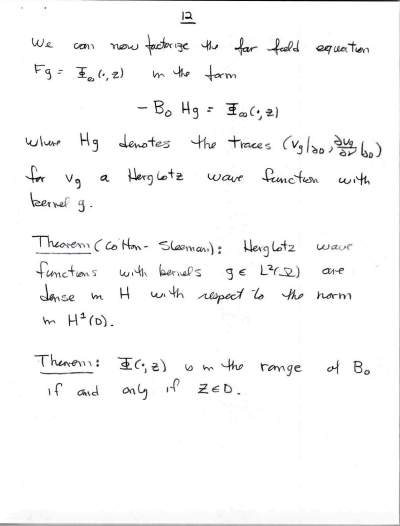 12
We can now factorize the far field equation
Fg = Φ∞(·, z) in the form
− B₀ Hg = Φ∞(·, z)
where Hg denotes the traces (vg|∂D, ∂vg/∂ν|∂D)
for vg a Herglotz wave function with
kernel g.
Theorem (Colton-Sleeman): Herglotz wave
functions with kernels g ∈ L²(Ω) are
dense in H with respect to the norm
in H¹(D).
Theorem: Φ(·, z) is in the range of B₀
if and only if z ∈ D.